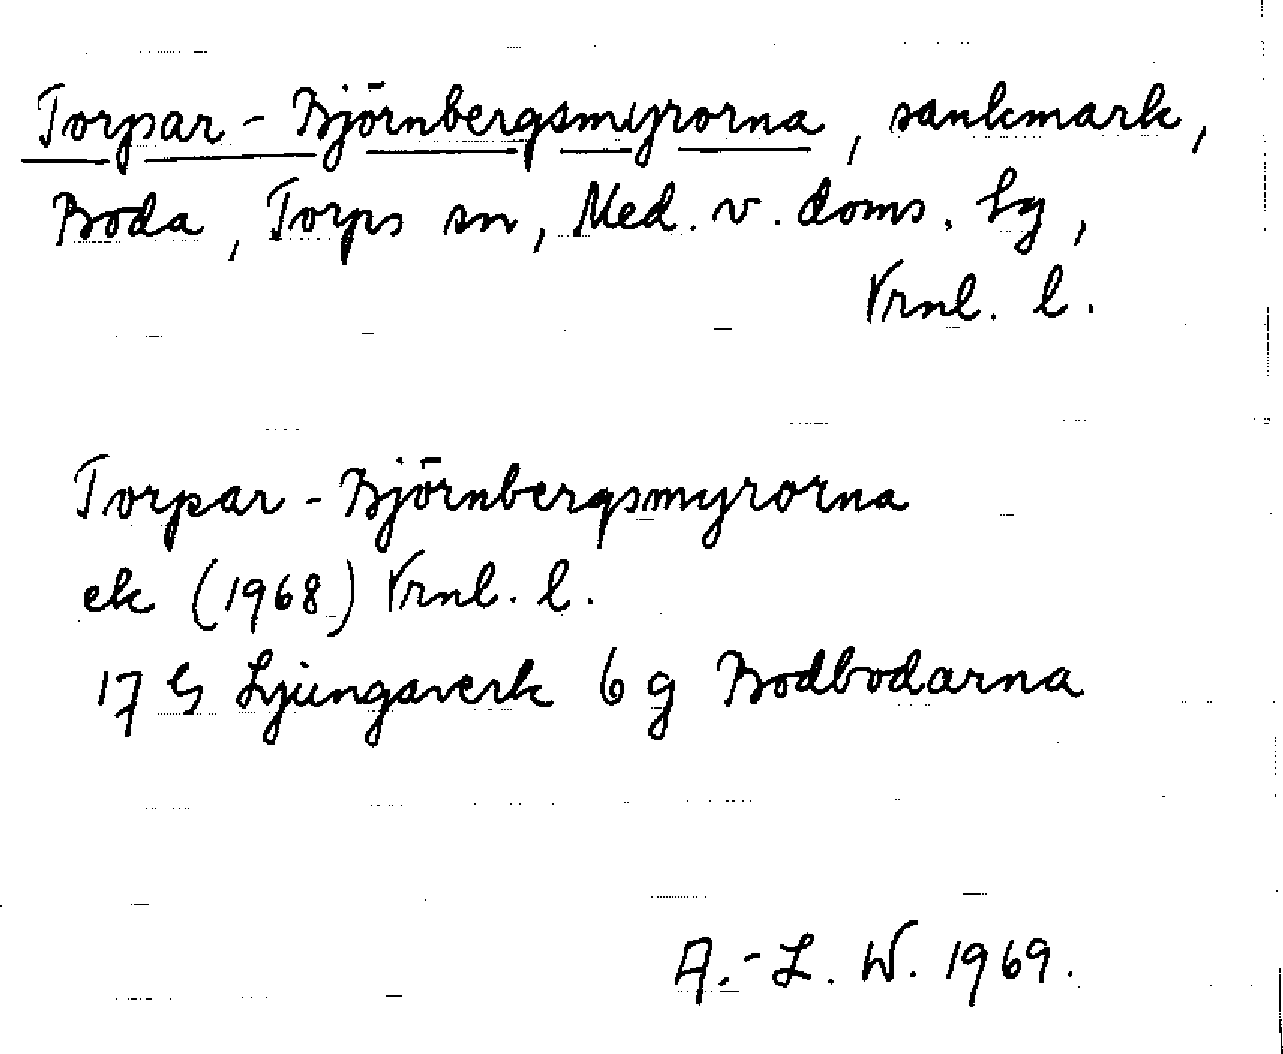 Torpar-Björnbergsmyrorna, sankmark,
Boda, Torps sn, Med. v. doms. hg,
Vrnl. l.
Torpar-Björnbergsmyrorna
ek (1968) Vrnl. l.
17 G Ljungaverk 6 g Bodbodarna
A.-L. W. 1969.